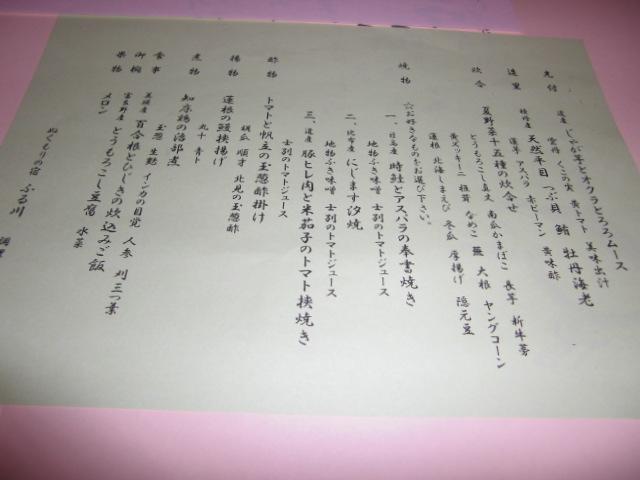 先付
道産 じゃが芋とオクラとろろムース
雲丹 くこの実 黄トマト 美味出汁
造里
天然平目 つぶ貝 鮪 牡丹海老
蓮芋 アスパラ 赤ピーマン 黄味酢
炊合
夏野菜十五種の炊合せ
とうもろこし真丈 南瓜かまぼこ 長芋 新牛蒡
黄ズッキーニ 椎茸 なめこ 蕪 大根 ヤングコーン
蓮根 北海しまえび 冬瓜 厚揚げ 隠元豆
焼物
☆お好きなものをお選び下さい。
一、日高産 時鮭とアスパラの奉書焼き
地物ふき味噌 士別のトマトジュース
二、にじます汐焼
地物ふき味噌 士別のトマトジュース
三、道産 豚ヒレ肉と米茄子のトマト挟焼き
士別のトマトジュース
酢物
トマトと帆立の玉葱酢掛け
胡瓜 順才 北見の玉葱酢
揚物
蓮根の鰻挟揚げ
丸十 青ト
煮物
知床鶏の治部煮
玉葱 生麩 インカの目覚 人参
食事
美瑛産 百合根とひじきの炊込みご飯
刈三つ葉
御椀
富良野産 とうもろこし豆腐 水菜
果物
メロン
ぬくもりの宿 ふる川
調理